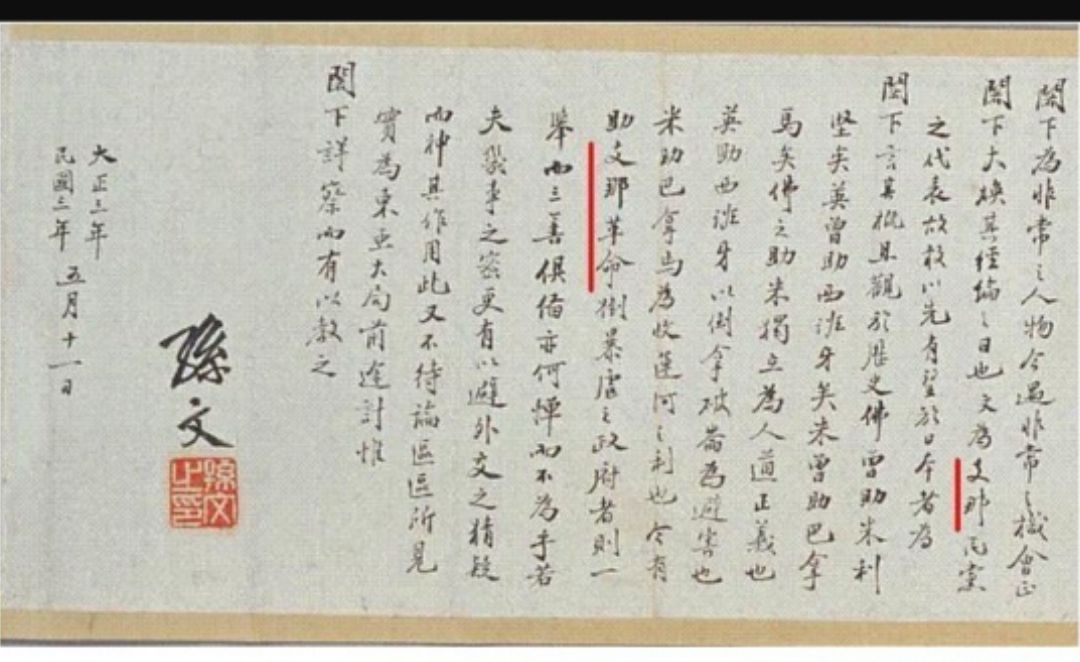 閣下為非常之人物今遇非常之機會正
閣下大煥其經綸之日也文為支那民黨
之代表故敢以先有望於日本者為
閣下言其概且觀於歷史佛曾助米利
堅矣英曾助西班牙矣米曾助巴拿
馬矣佛之助米獨立為人道正義也
英助西班牙以倒拿破崙為避害也
米助巴拿馬為收運河之利也今有
助支那革命倒暴虐之政府者則一
舉而三善俱備亦何憚而不為乎若
夫幾事之密更有以避外交之猜疑
而神其作用此又不待論區區所見
實為東亞大局前途計惟
閣下詳察而有以教之
孫文
孫文之印
大正三年
民國三年 五月十一日